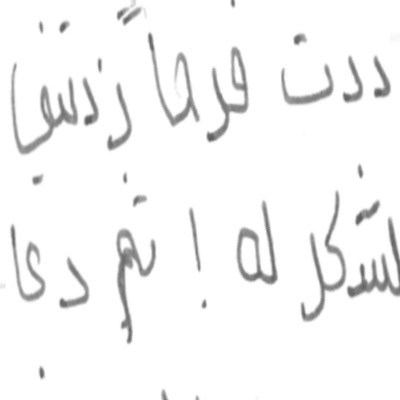 ددت فرحاً
لشكر له ! ثم دعا